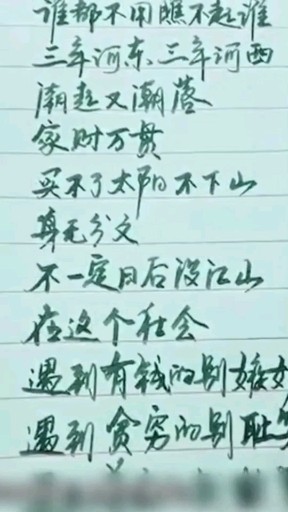 谁都不用瞧不起谁
三年河东三年河西
潮起又潮落
家财万贯
买不了太阳不下山
身无分文
不一定日后没江山
在这个社会
遇到有钱的别嫉妒
遇到贫穷的别耻